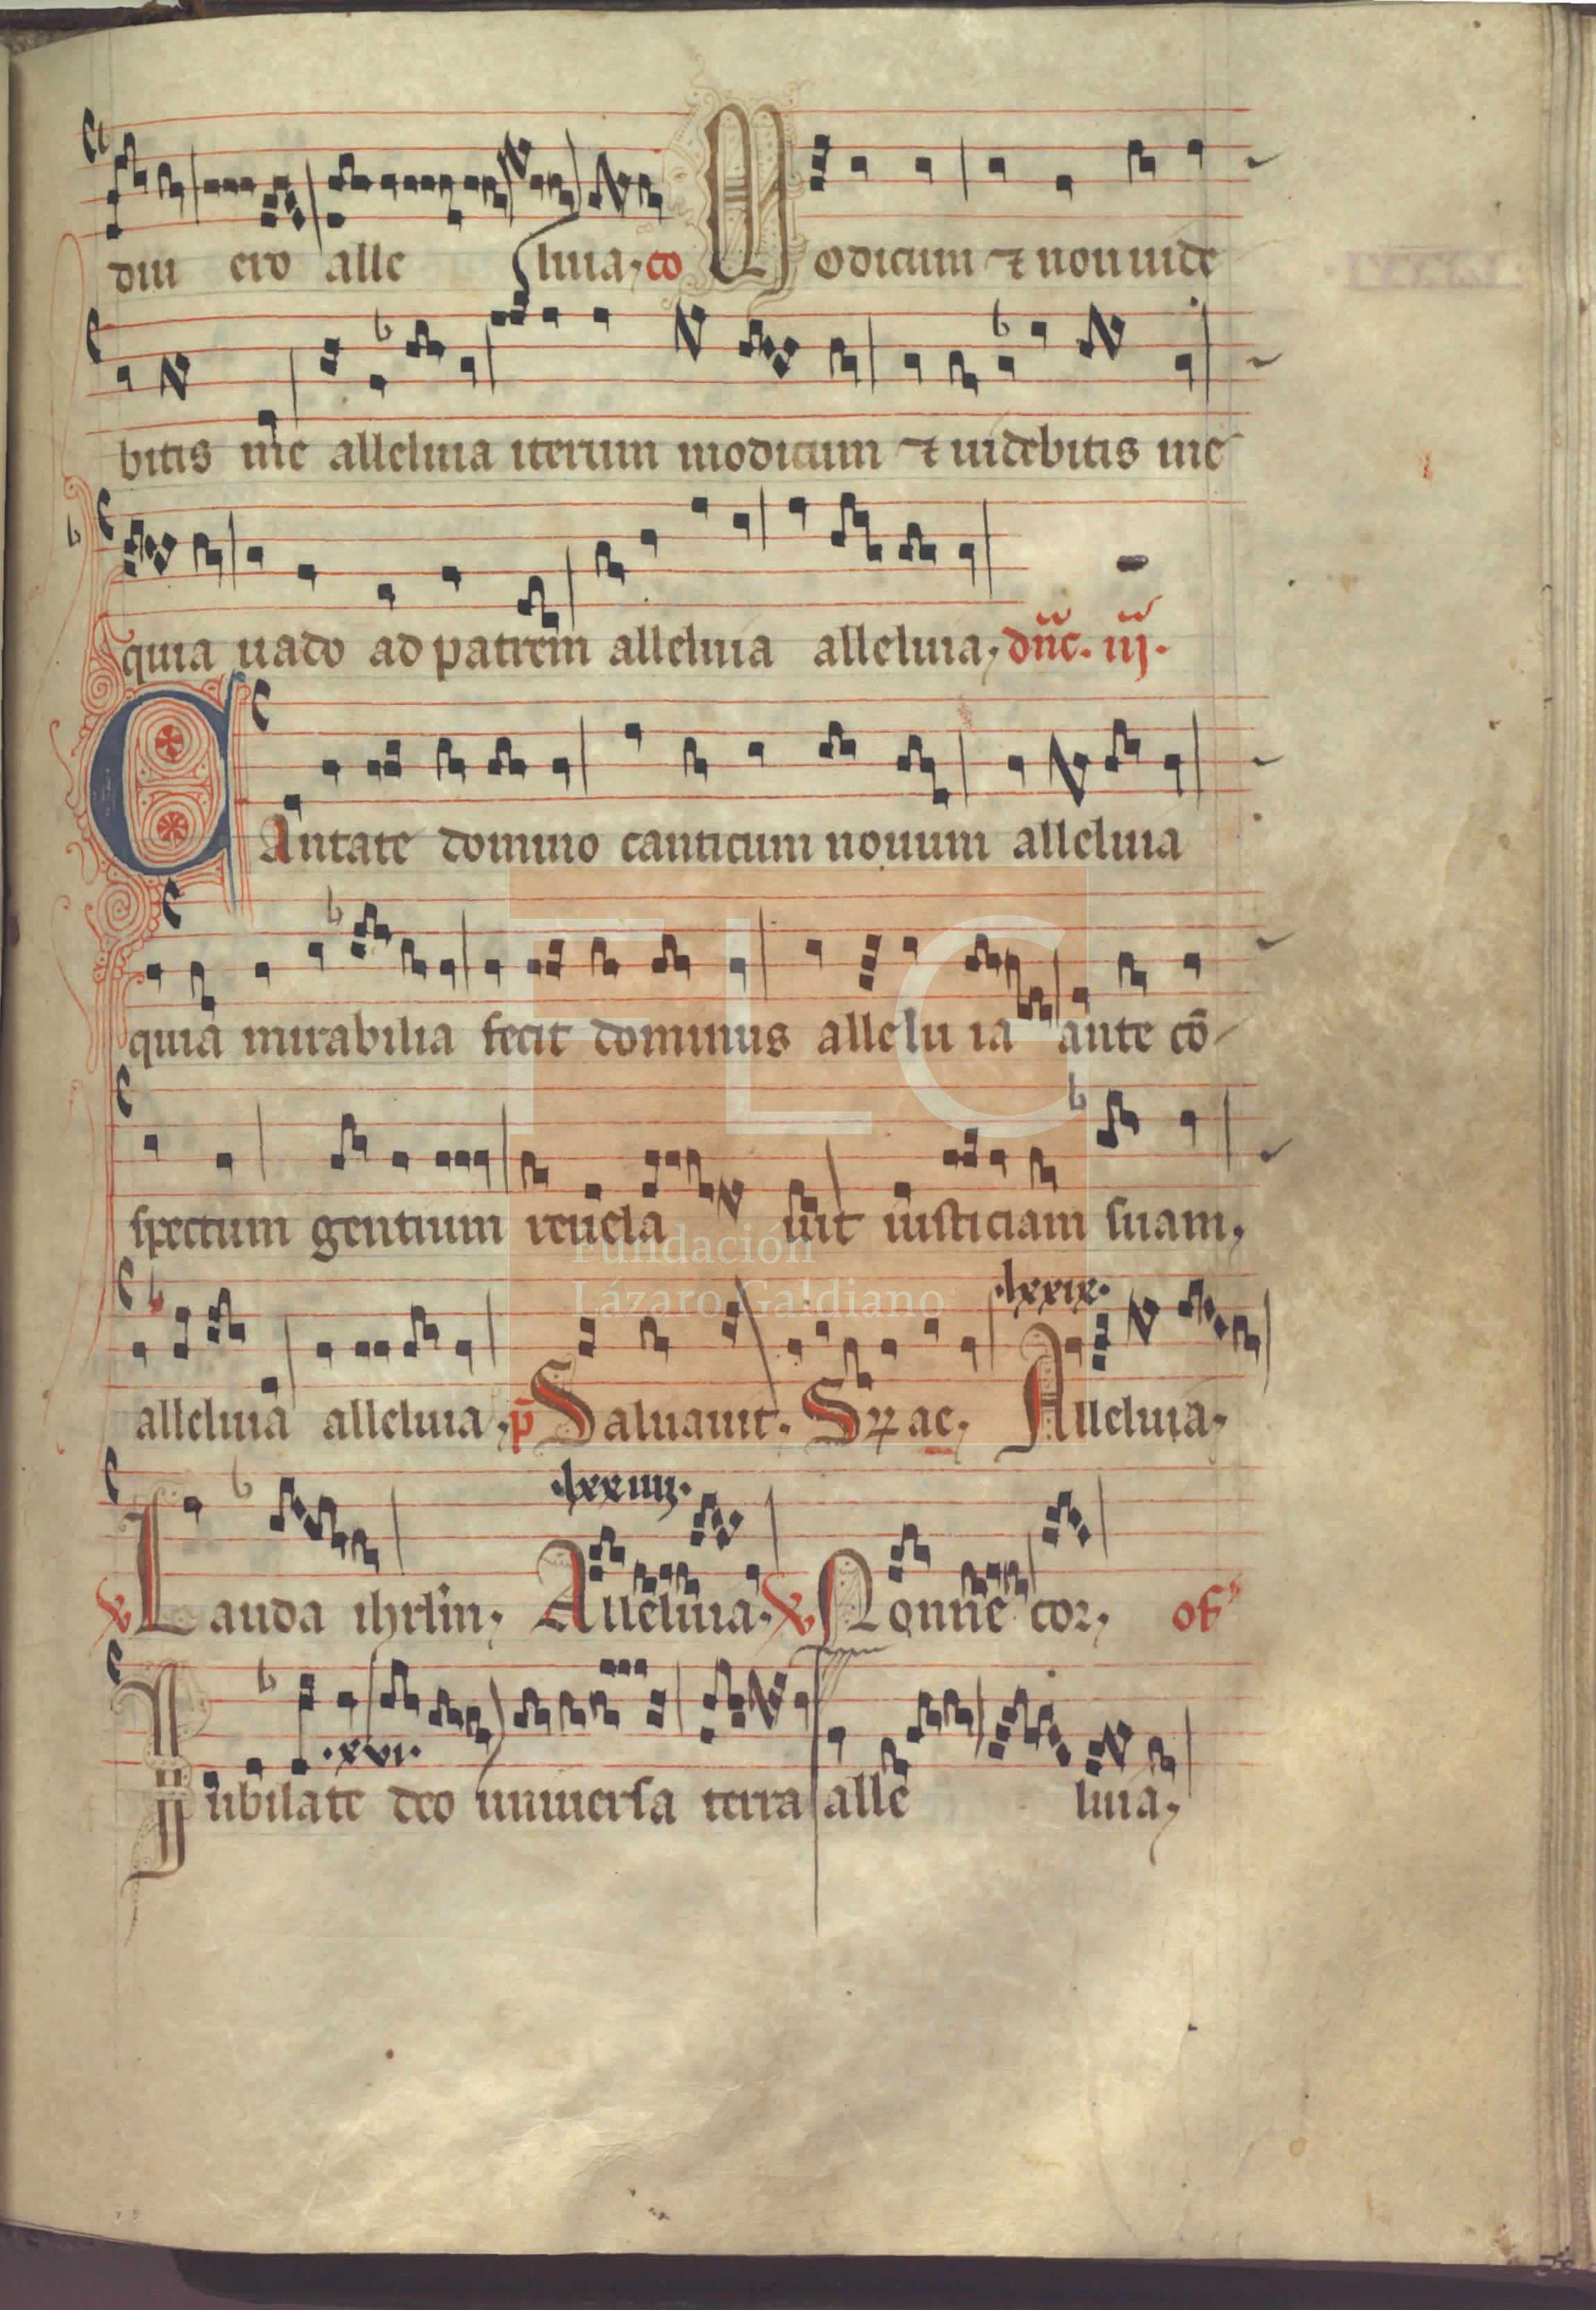 diu ero alle luia, co Modicum ⁊ non uide
bitis me alleluia iterum modicum ⁊ uidebitis me
quia uado ad patrem alleluia alleluia, dn̄c. iiij.
CAntate domino canticum nouum alleluia
quia mirabilia fecit dominus allelu ia ante cō
spectum gentium reuela uit iusticiam suam,
.lxxix.
alleluia alleluia, p̄ Saluauit. S ꝝ ae, Alleluia,
.lxxiiij.
℣ Lauda ihrl̄m, Alleluia. ℣ Nonne cor, of
.xvi.
Iubilate deo uniuersa terra alle luia,
FLG
Fundación
Lázaro Galdiano